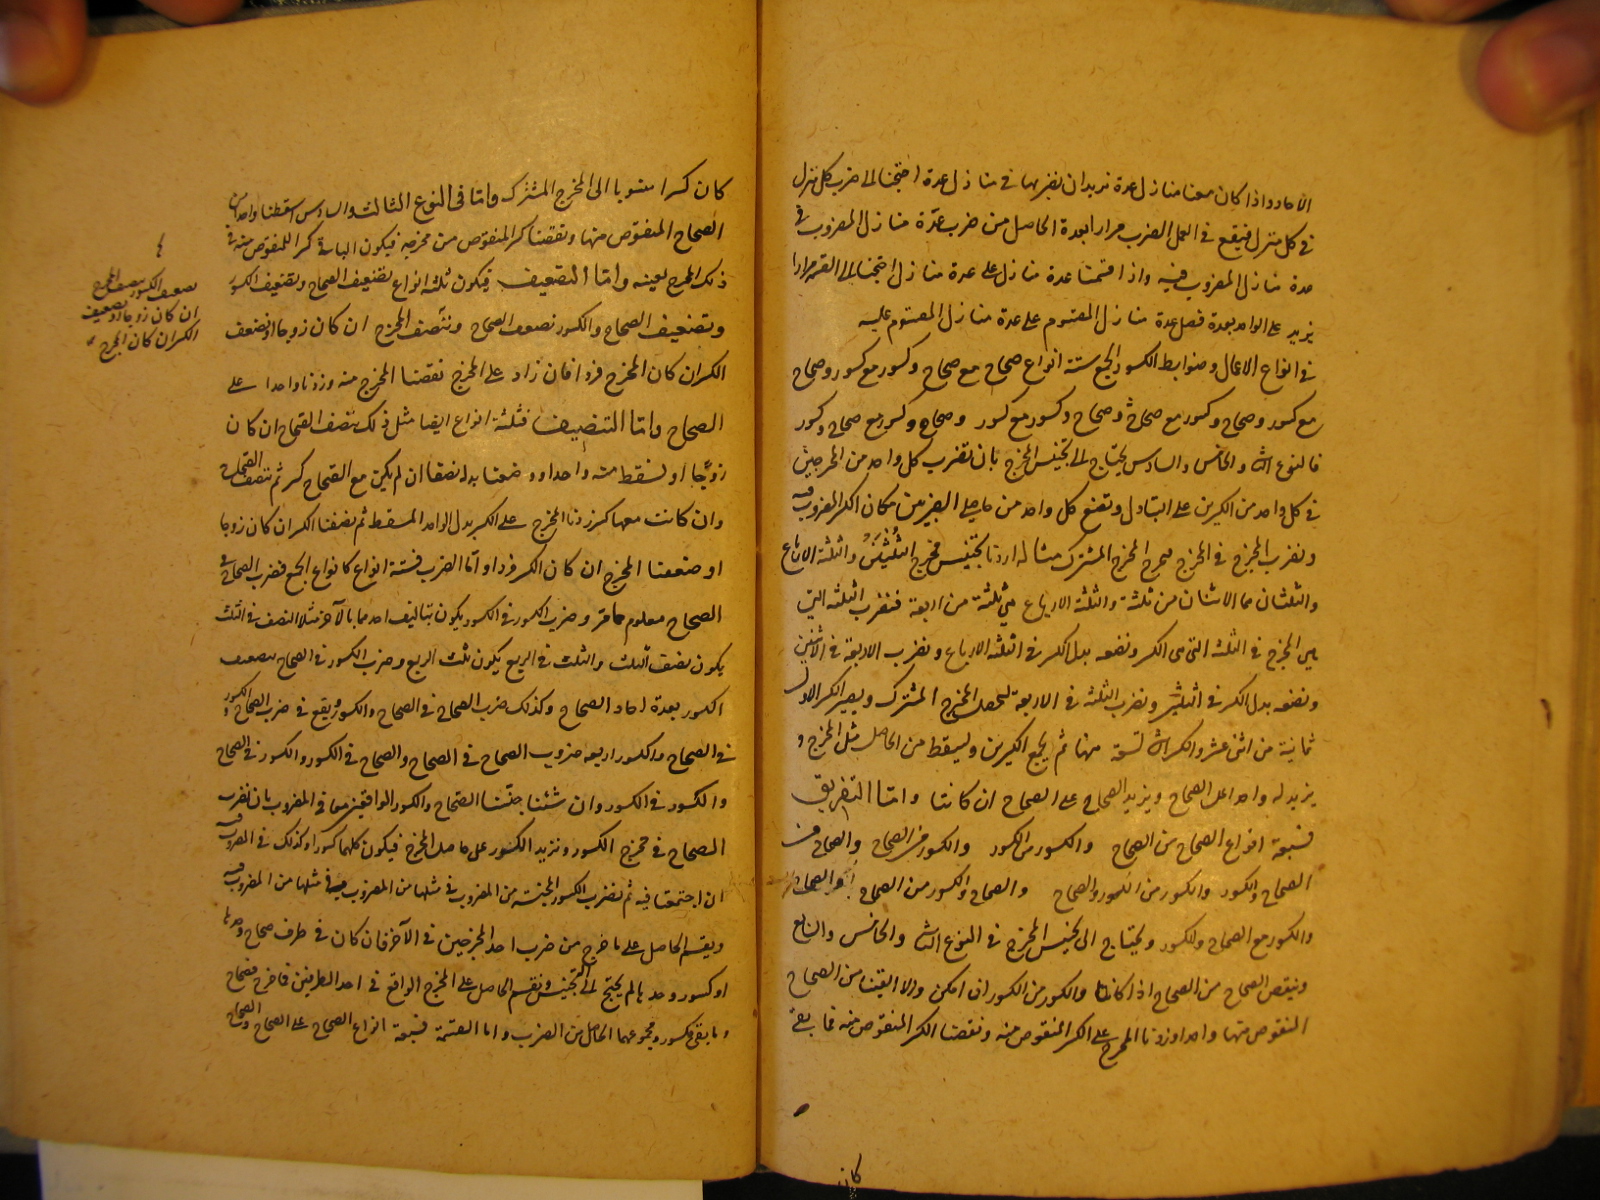 الآحاد واذا كان معنا منازل عدة نريد ان نضربها في منازل عدة احتجنا الى ضرب كل منزل
في كل منزل فيقع في العمل الضرب مرارا بعدة الحاصل من ضرب عدة منازل المضروب في
عدة منازل المضروب فيه واذا قسمنا عدة منازل على عدة منازل احتجنا الى القسمة مرارا
يزيد على الواحد بعدة فضل عدة منازل المقسوم على عدة منازل المقسوم عليه
في انواع الاعمال وضوابط الكسور الجمع ستة انواع صحاح مع صحاح وكسور مع كسور وصحاح
مع كسور وصحاح وكسور مع صحاح وصحاح وكسور مع كسور وصحاح وكسور مع صحاح وكسور
فالنوع الثا والخامس والسادس يحتاج الى تجنيس المخرج بان نضرب كل واحد من المخرجين
في كل واحد من الكسرين على التبادل ونضع كل واحد من حاصلي الضربين مكان الكسر المضروب فيه
ونضرب المخرج في المخرج فيخرج المخرج المشترك مثاله اردنا تجنيس مخرج الثلثين والثلثة الارباع
والثلثان هما الاثنان من ثلثة والثلثة الارباع هي ثلثة من اربعة فنضرب الثلثة التي
هي المخرج في الثلثة التي هي الكسر ونضعه بدل الكسر في الثلثة الارباع ونضرب الاربعة في الاثنين
ونضعه بدل الكسر في الثلثين ونضرب الثلثة في الاربعة ليحصل المخرج المشترك ويصير الكسر الاول
ثمانية من اثنى عشر والكسر الثا تسعة منها ثم يجمع الكسرين ويسقط من الحاصل مثل المخرج و
يزيد له واحدا على الصحاح ويزيد الصحاح على الصحاح ان كانتا واما التفريق
فسبعة انواع الصحاح من الصحاح والكسور من الكسور والكسور من الصحاح والصحاح من
الصحاح والكسور والكسور من الكسور والصحاح والصحاح والكسور من الصحاح والصحاح
والكسور مع الصحاح والكسور ويحتاج الى تجنيس المخرج في النوع الثا والخامس والسابع
وينقص الصحاح من الصحاح اذا كانتا والكسور من الكسور ان امكن والا القينا من الصحاح
المنقوص منها واحدا وزدنا المخرج على الكسر المنقوص منه ونقصنا الكسر المنقوص منه فما بقي
كان
كان كسرا منسوبا الى المخرج المشترك واما في النوع الثالث والسادس اسقطنا واحدا من
الصحاح المنقوص منها ونقصنا كسر المنقوص من مخرجه فيكون الباقي كسرا للمنقوص منه في
ذلك المخرج بعينه واما التضعيف فيكون ثلثة انواع تضعيف الصحاح وتضعيف الكسور
وتضعيف الصحاح والكسور نضعف الصحاح وننصف المخرج ان كان زوجا او نضعف
الكسر ان كان المخرج فردا فان زاد على المخرج نقصنا المخرج منه وزدنا واحدا على
الصحاح واما التنصيف فثلثة انواع ايضا مثل ذلك ننصف الصحاح ان كان
زوجا او نسقط منه واحدا ووضعنا بدله نصفا ان لم يكن مع الصحاح كسر ثم ننصف الصحاح
وان كانت معها كسر زدنا المخرج على الكسر بدل الواحد المسقط ثم نصفنا الكسر ان كان زوجا
او ضعفنا المخرج ان كان الكسر فردا واما الضرب فستة انواع كانواع الجمع فضرب الصحاح في
الصحاح معلوم مما مر وضرب الكسور في الكسور يكون بتاليف احدهما بالآخر مثلا النصف في الثلث
يكون نصف الثلث والثلث في الربع يكون ثلث الربع وضرب الكسور في الصحاح تضعيف
الكسور بعدة احاد الصحاح وكذلك ضرب الصحاح في الصحاح والكسور ويقع في ضرب الصحاح والكسور
في الصحاح والكسور اربعة ضروب الصحاح في الصحاح والصحاح في الكسور والكسور في الصحاح
والكسور في الكسور وان شئنا جنسنا الصحاح والكسور الواقعين معا في المضروب بان نضرب
الصحاح في مخرج الكسور ونزيد الكسور على حاصل المخرج فيكون كلهما كسورا وكذلك في المضروب فيه
ان اجتمعتا فيه ثم نضرب الكسور المجنسة من المضروب في مثلها من المضروب فيه
ويقسم الحاصل على ما خرج من ضرب احد المخرجين في الآخر فان كان في طرف صحاح وحدها
او كسور وحدها لم يحتج الى التجنيس ونقسم الحاصل على المخرج الواقع في احد الطرفين فما خرج فصحاح
وما بقي فكسور ومجموعهما الحاصل من الضرب واما القسمة فسبعة انواع الصحاح على الصحاح والصحاح
تضعيف الكسور بنصف المخرج
ان كان زوجا او تضعيف
الكسر ان كان المخرج